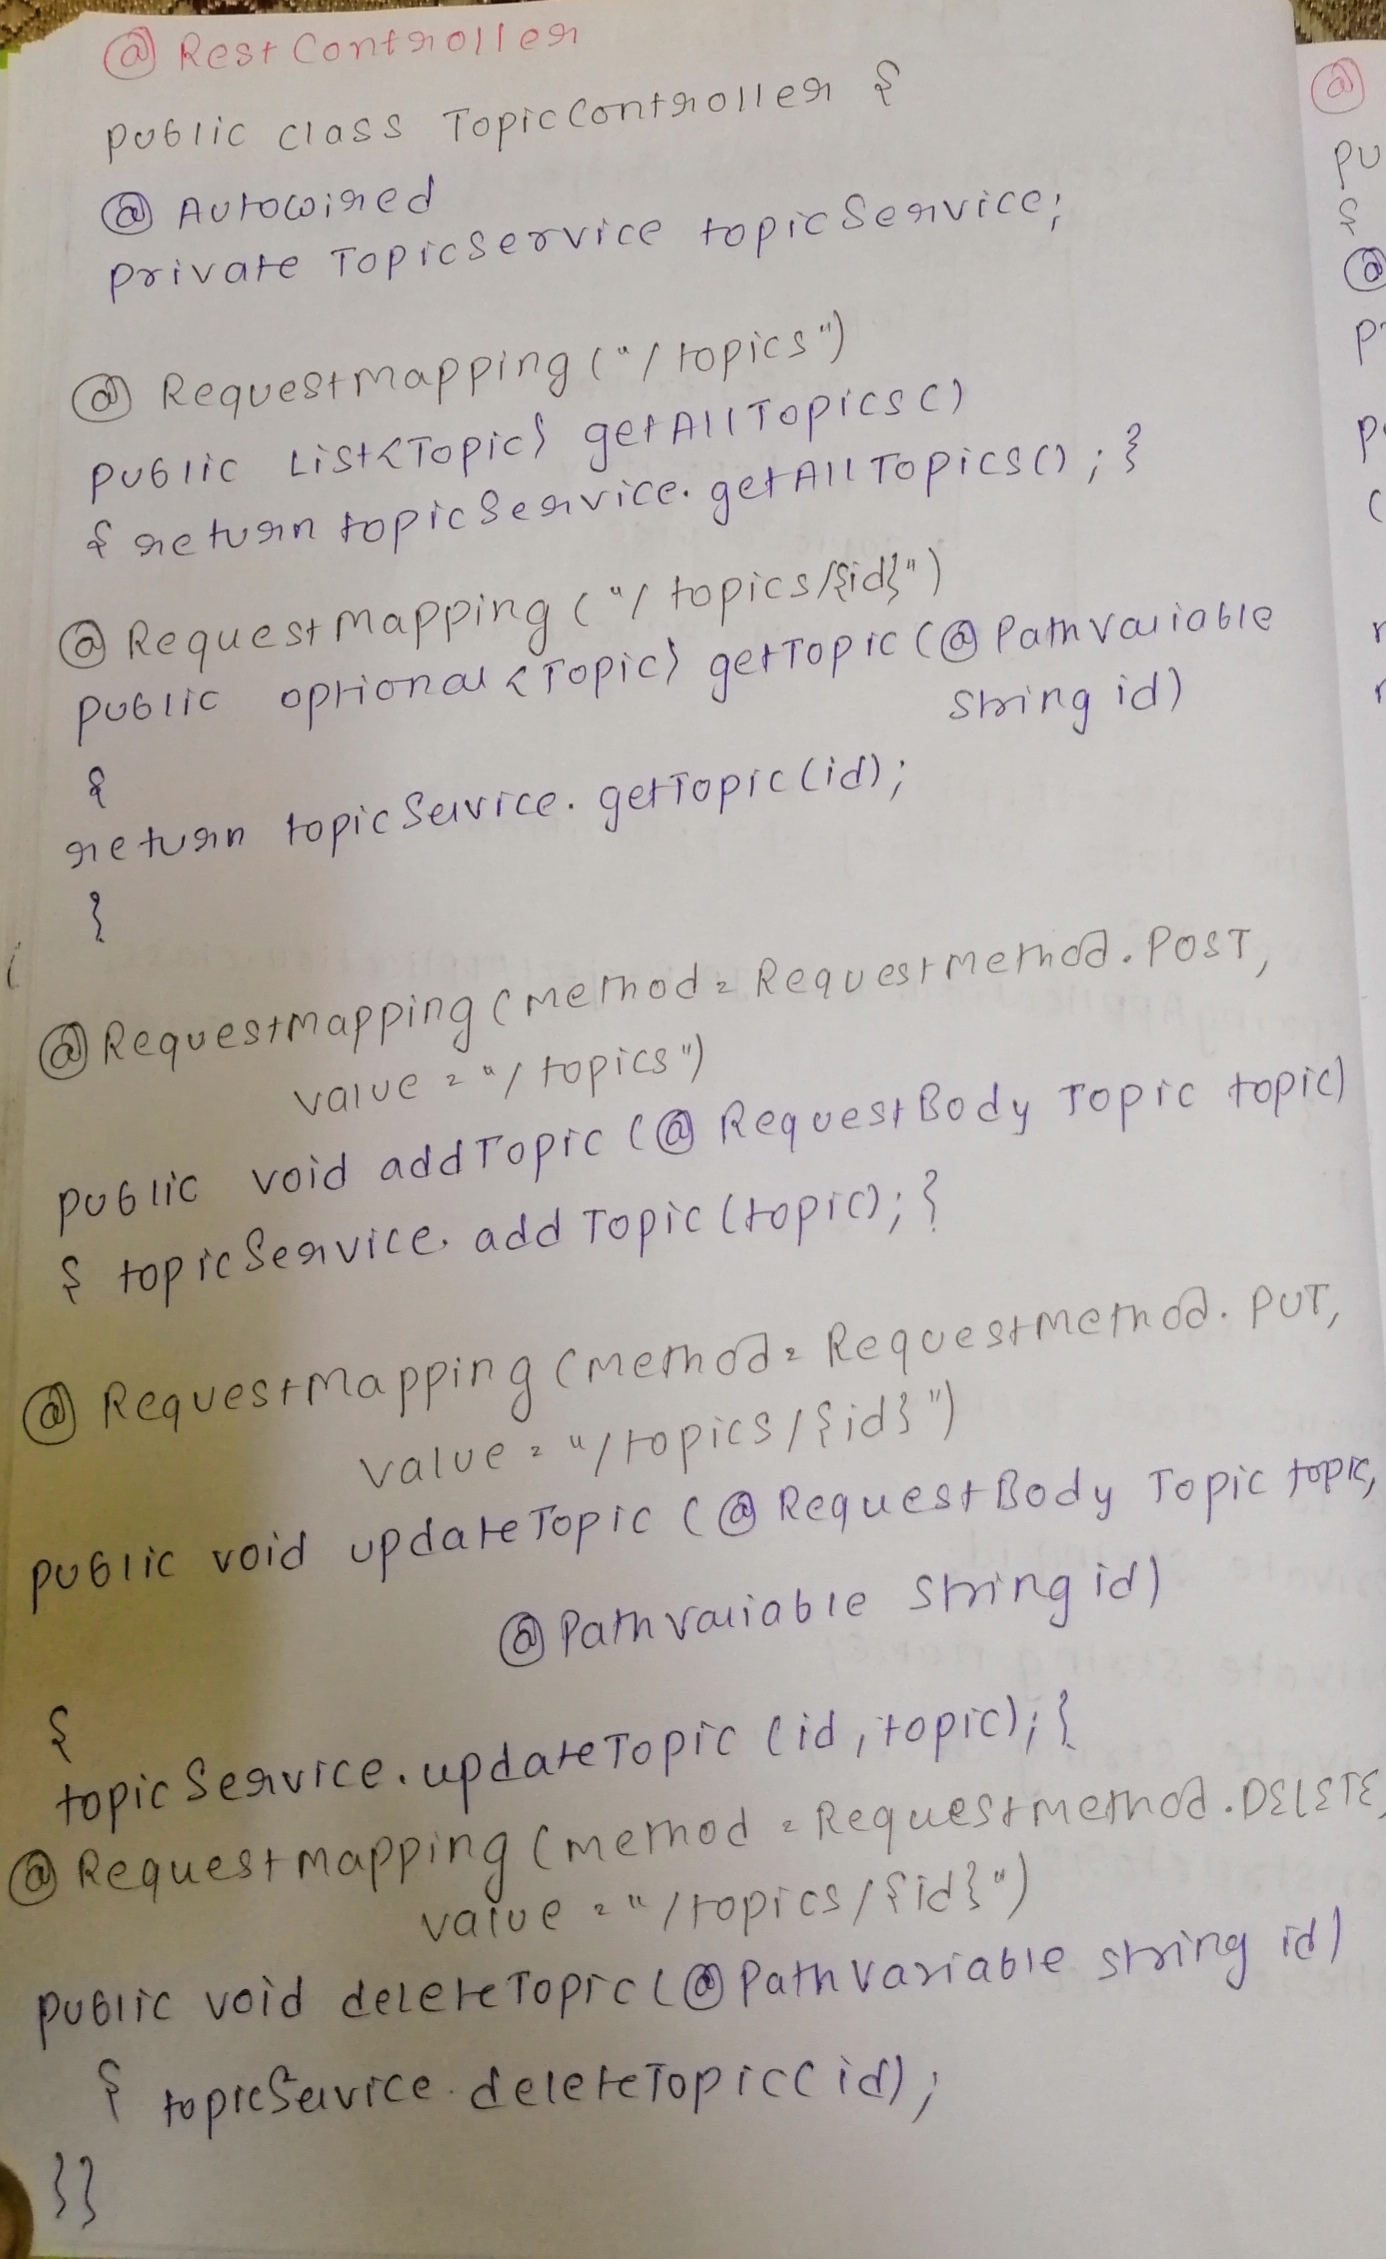 @RestController
public class TopicController {
@Autowired
private TopicService topicService;
@RequestMapping("/topics")
public List<Topic> getAllTopics()
{ return topicService.getAllTopics(); }
@RequestMapping("/topics/{id}")
public optional<Topic> getTopic(@PathVariable
String id)
{
return topicService.getTopic(id);
}
@RequestMapping(method=RequestMethod.POST,
value="/topics")
public void addTopic(@RequestBody Topic topic)
{ topicService.addTopic(topic); }
@RequestMapping(method=RequestMethod.PUT,
value="/topics/{id}")
public void updateTopic(@RequestBody Topic topic,
@PathVariable String id)
{
topicService.updateTopic(id, topic); }
@RequestMapping(method=RequestMethod.DELETE,
value="/topics/{id}")
public void deleteTopic(@PathVariable String id)
{ topicService.deleteTopic(id);
}}